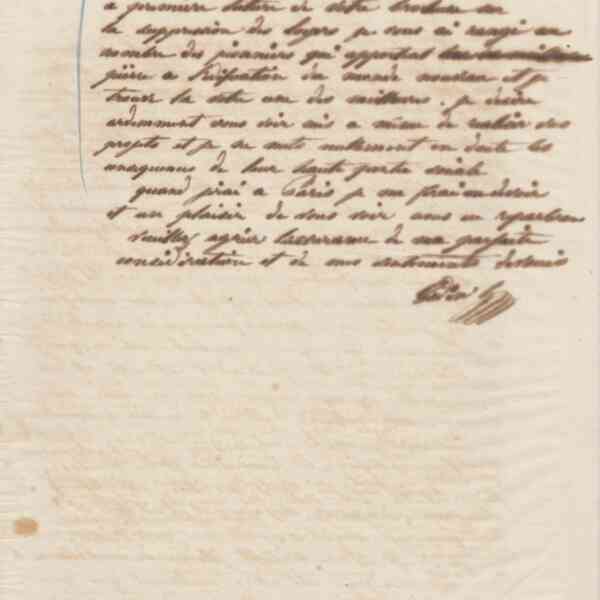 a première lecture de votre brochure sur
la suppression des loyers je vous ai rangé au
nombre des pionniers qui apportent
pierre a l'édification du monde nouveau et je
trouve la votre une des meilleures. je désire
ardemment vous voir mis a même de réaliser vos
projets et je ne mets nullement en doute les
de leur haute portée sociale
quand j'irai a Paris je me ferai un devoir
et un plaisir de vous voir nous en reparlerons
veuillez agréer l'assurance de ma parfaite
considération et de mes sentiments dévoués
Godin